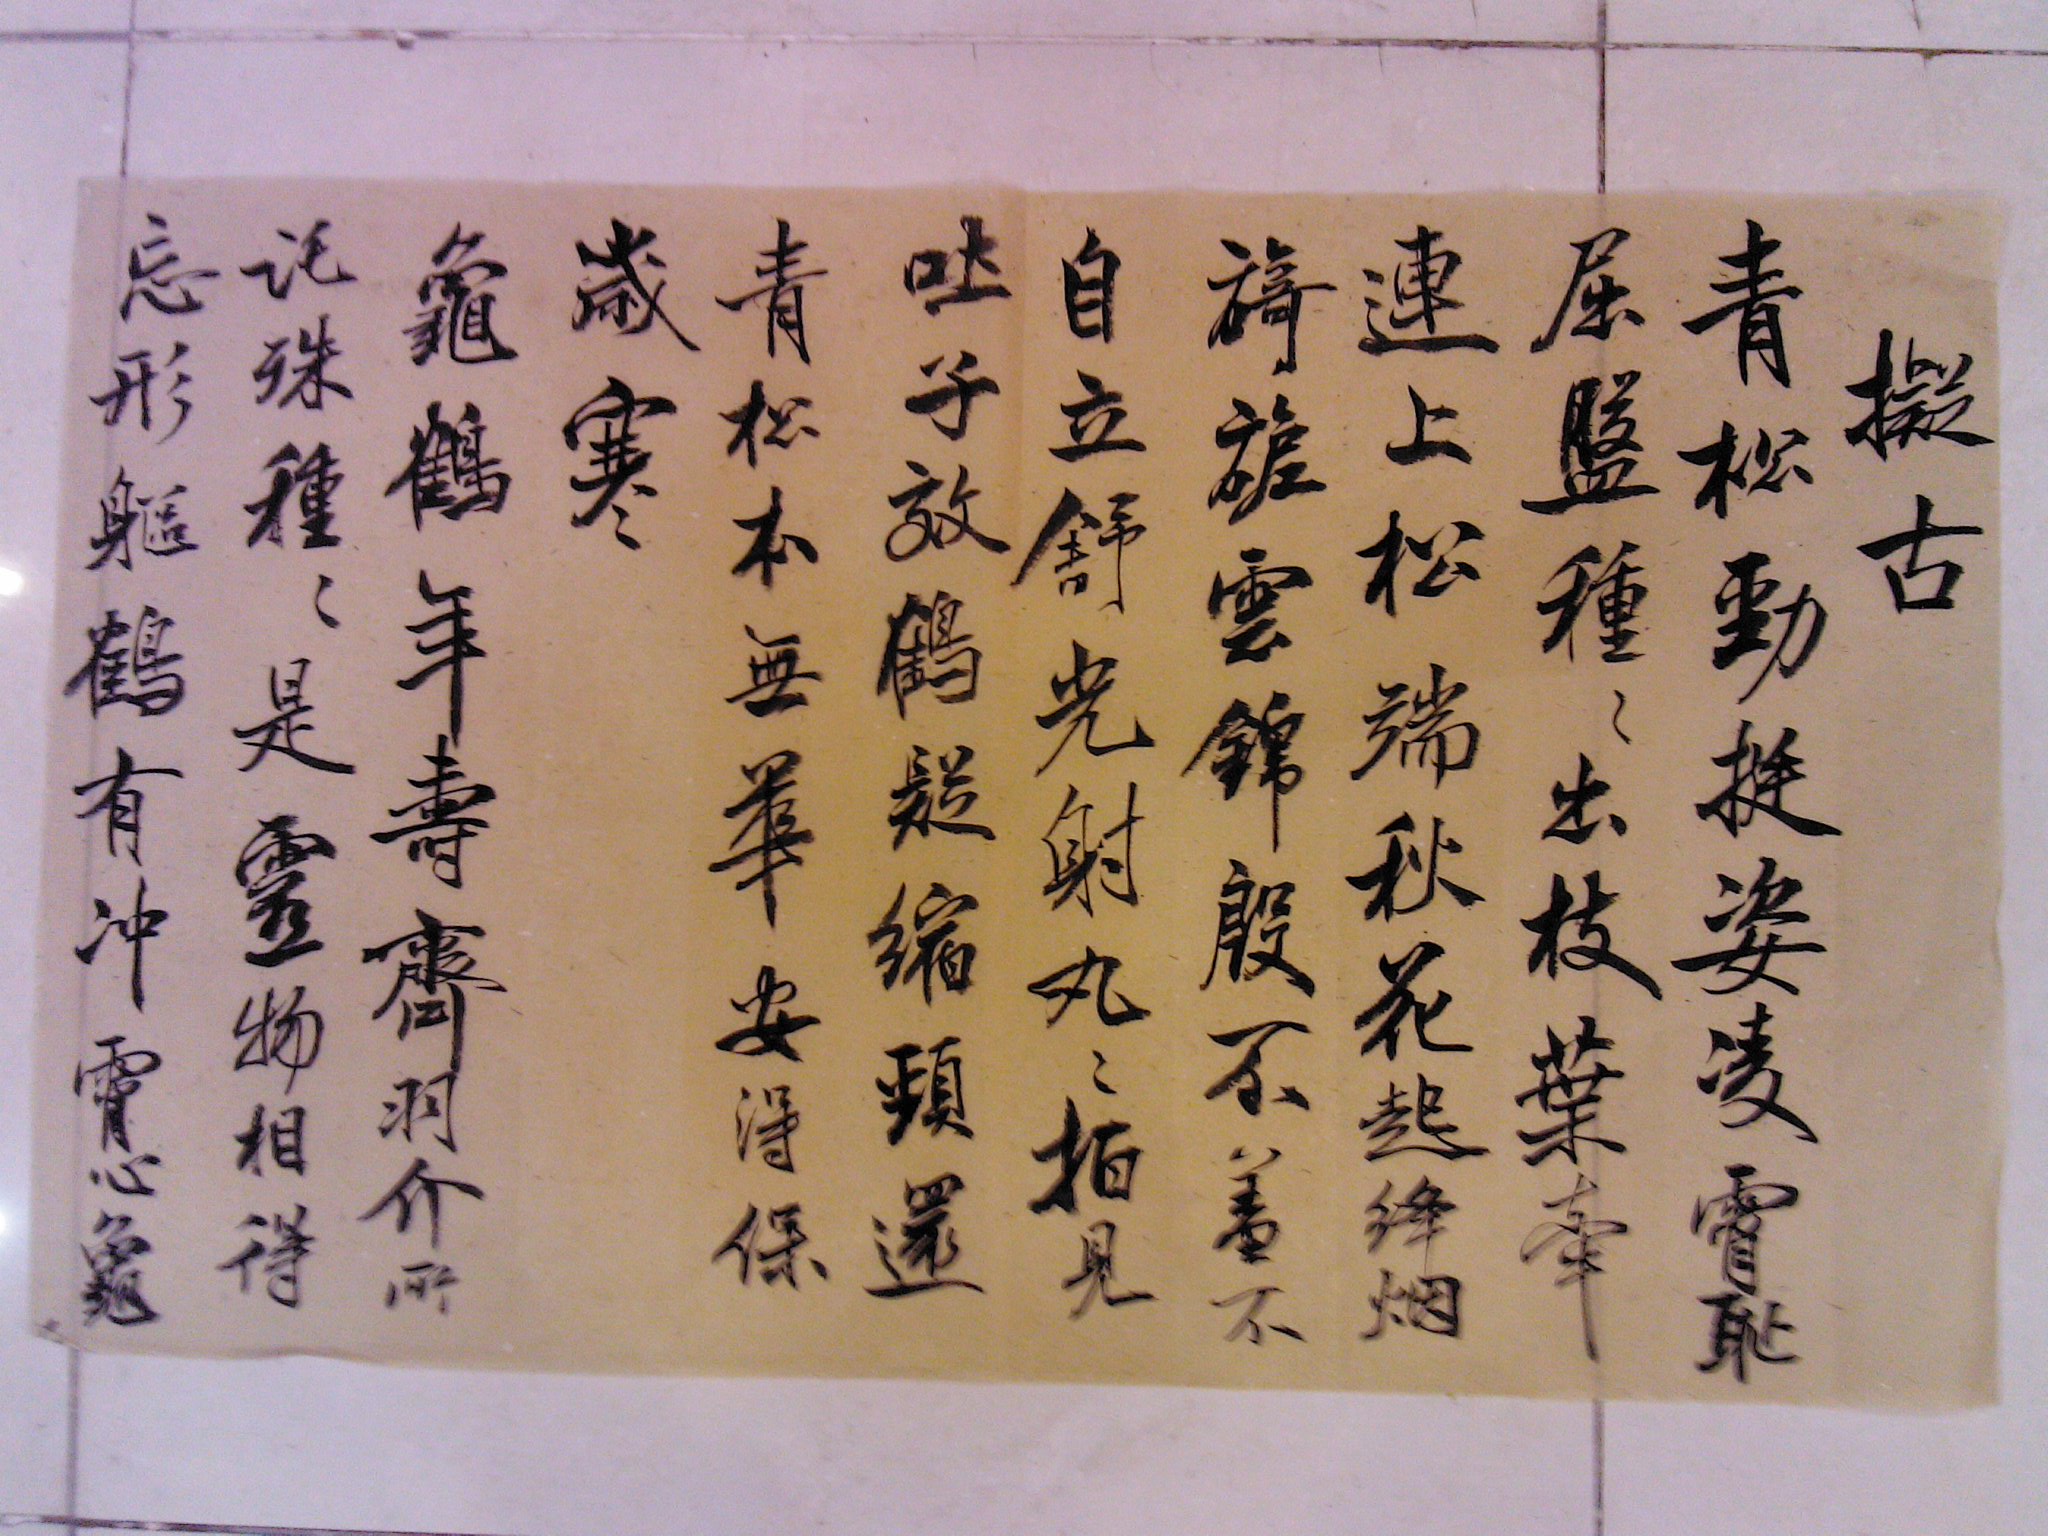 擬古
青松勁挺姿凌霄恥
屈盤種〻出枝葉牽
連上松端秋花起絳烟
旖旎雲錦殷不羞不
自立舒光射丸〻柏見
吐子效鶴疑縮頸還
青松本無華安得保
歲寒〻
龜鶴年壽齊羽介所
託殊種〻是靈物相得
忘形軀鶴有沖霄心龜